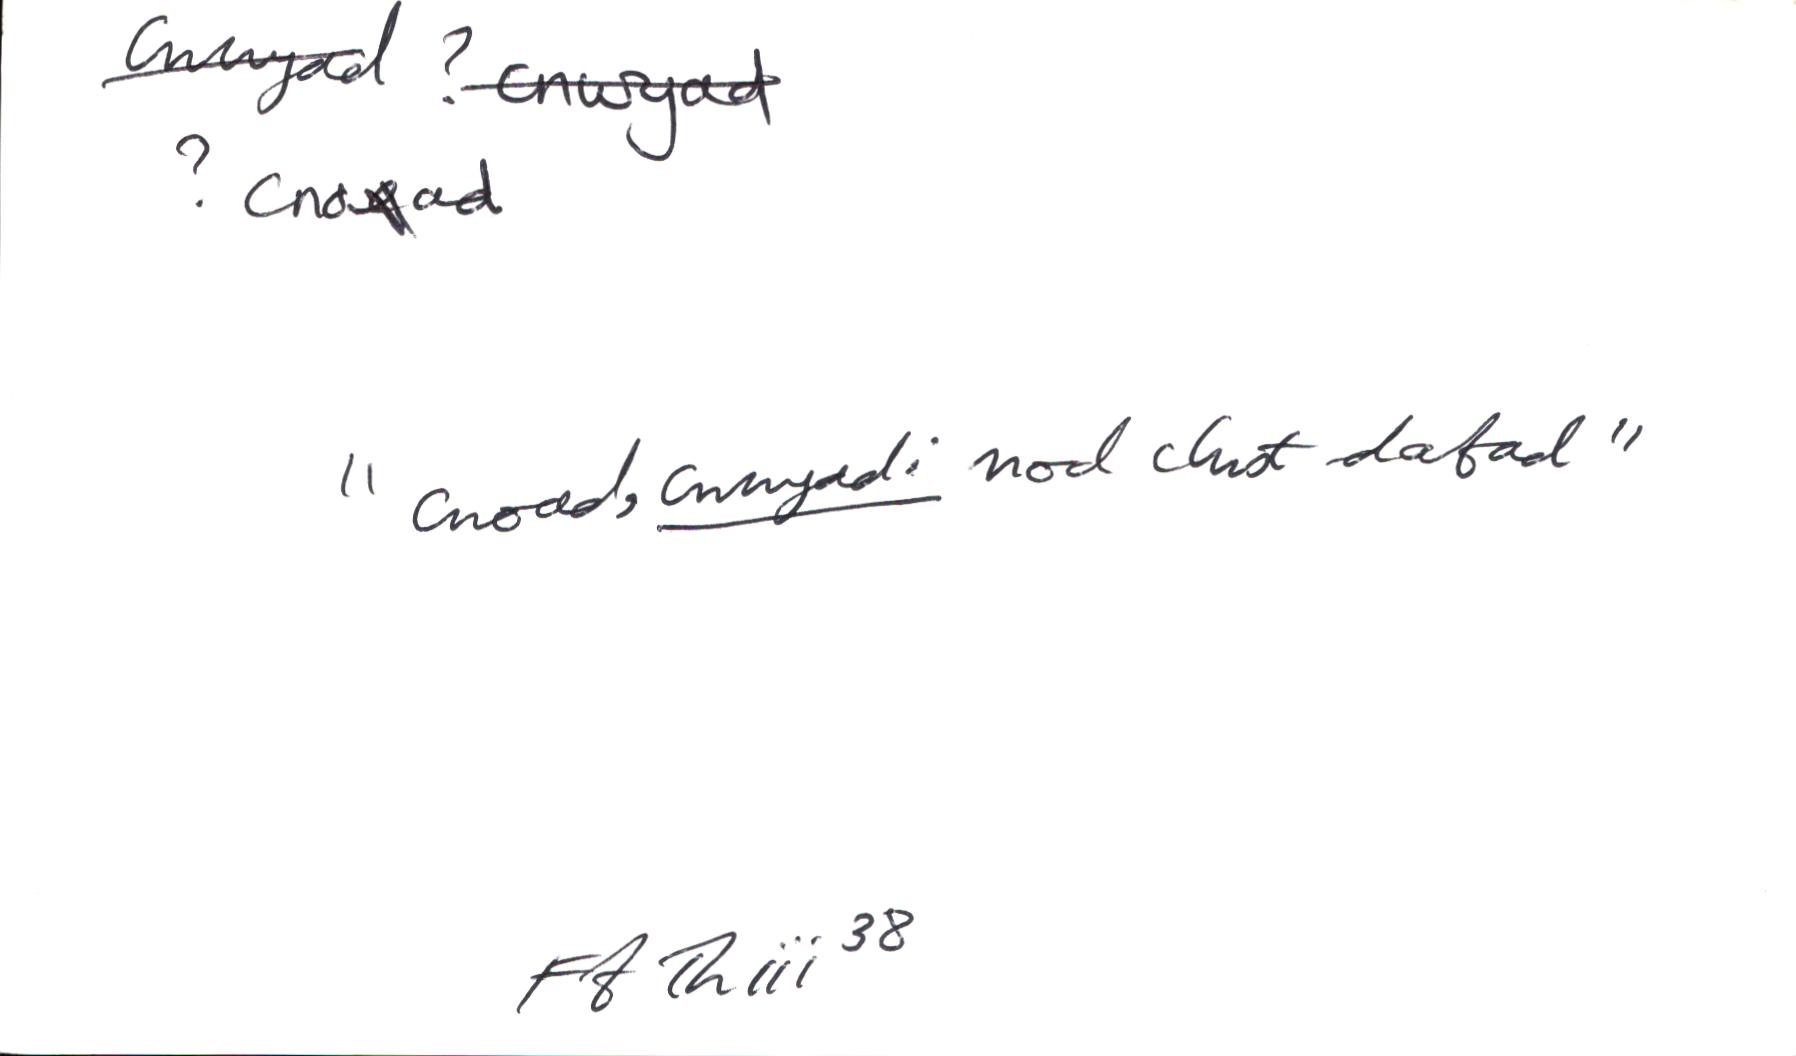 Cnwyad ? cnwyad
? cnoad
"cnoad, cnwyad: nod clust dafad"
Ff Th iii 38